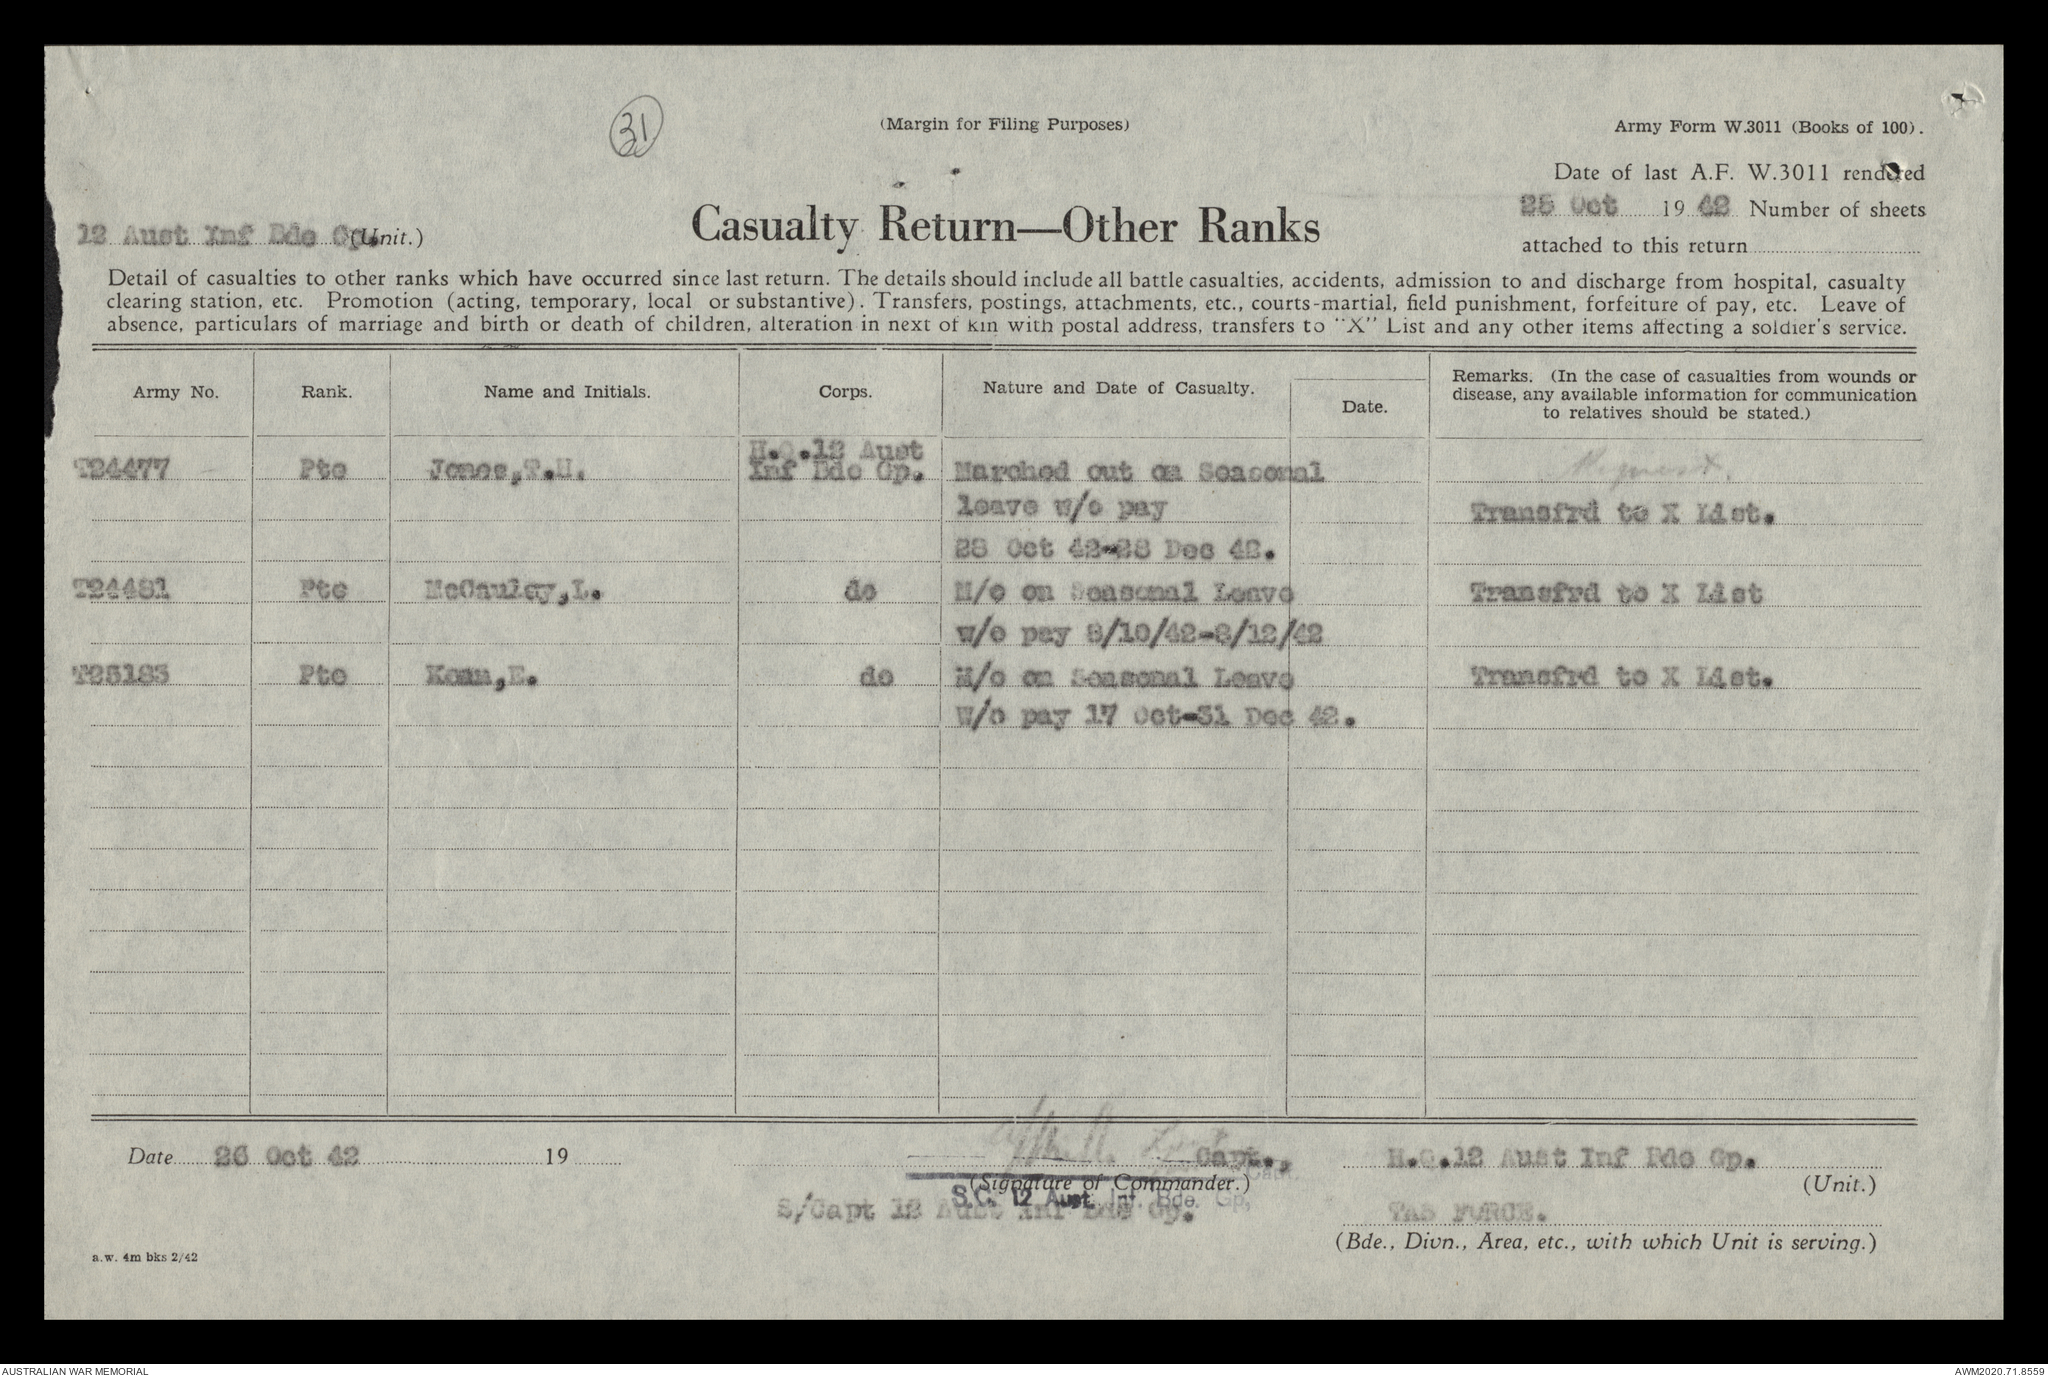 31
(Margin for Filing Purposes)
Army Form W.3011 (Books of 100).
Date of last A.F. W.3011 rendered
25 Oct 19 42 Number of sheets
attached to this return
12 Aust Inf Bde Gp. (Unit.)
Casualty Return—Other Ranks
Detail of casualties to other ranks which have occurred since last return. The details should include all battle casualties, accidents, admission to and discharge from hospital, casualty
clearing station, etc. Promotion (acting, temporary, local or substantive). Transfers, postings, attachments, etc., courts-martial, field punishment, forfeiture of pay, etc. Leave of
absence, particulars of marriage and birth or death of children, alteration in next of kin with postal address, transfers to "X" List and any other items affecting a soldier's service.
Army No. Rank. Name and Initials. Corps. Nature and Date of Casualty. Date. Remarks. (In the case of casualties from wounds or
disease, any available information for communication
to relatives should be stated.)
H.Q.12 Aust
T24477 Pte Jones,T.H. Inf Bde Gp. Marched out on Seasonal Request.
leave w/o pay Transfrd to X List.
28 Oct 42-28 Dec 42.
T24481 Pte McCauley,L. do M/o on Seasonal Leave Transfrd to X List
w/o pay 8/10/42-8/12/42
T25183 Pte Keam,E. do M/o on Seasonal Leave Transfrd to X List.
W/o pay 17 Oct-31 Dec 42.
Date 26 Oct 42 19 Capt., H.Q.12 Aust Inf Bde Gp.
(Signature of Commander.) Capt. (Unit.)
S.C. 12 Aust. Inf. Bde. Gp,
S/Capt 12 Aust Inf Bde Gp. TAS FORCE.
(Bde., Divn., Area, etc., with which Unit is serving.)
a.w. 4m bks 2/42
AUSTRALIAN WAR MEMORIAL AWM2020.71.8559